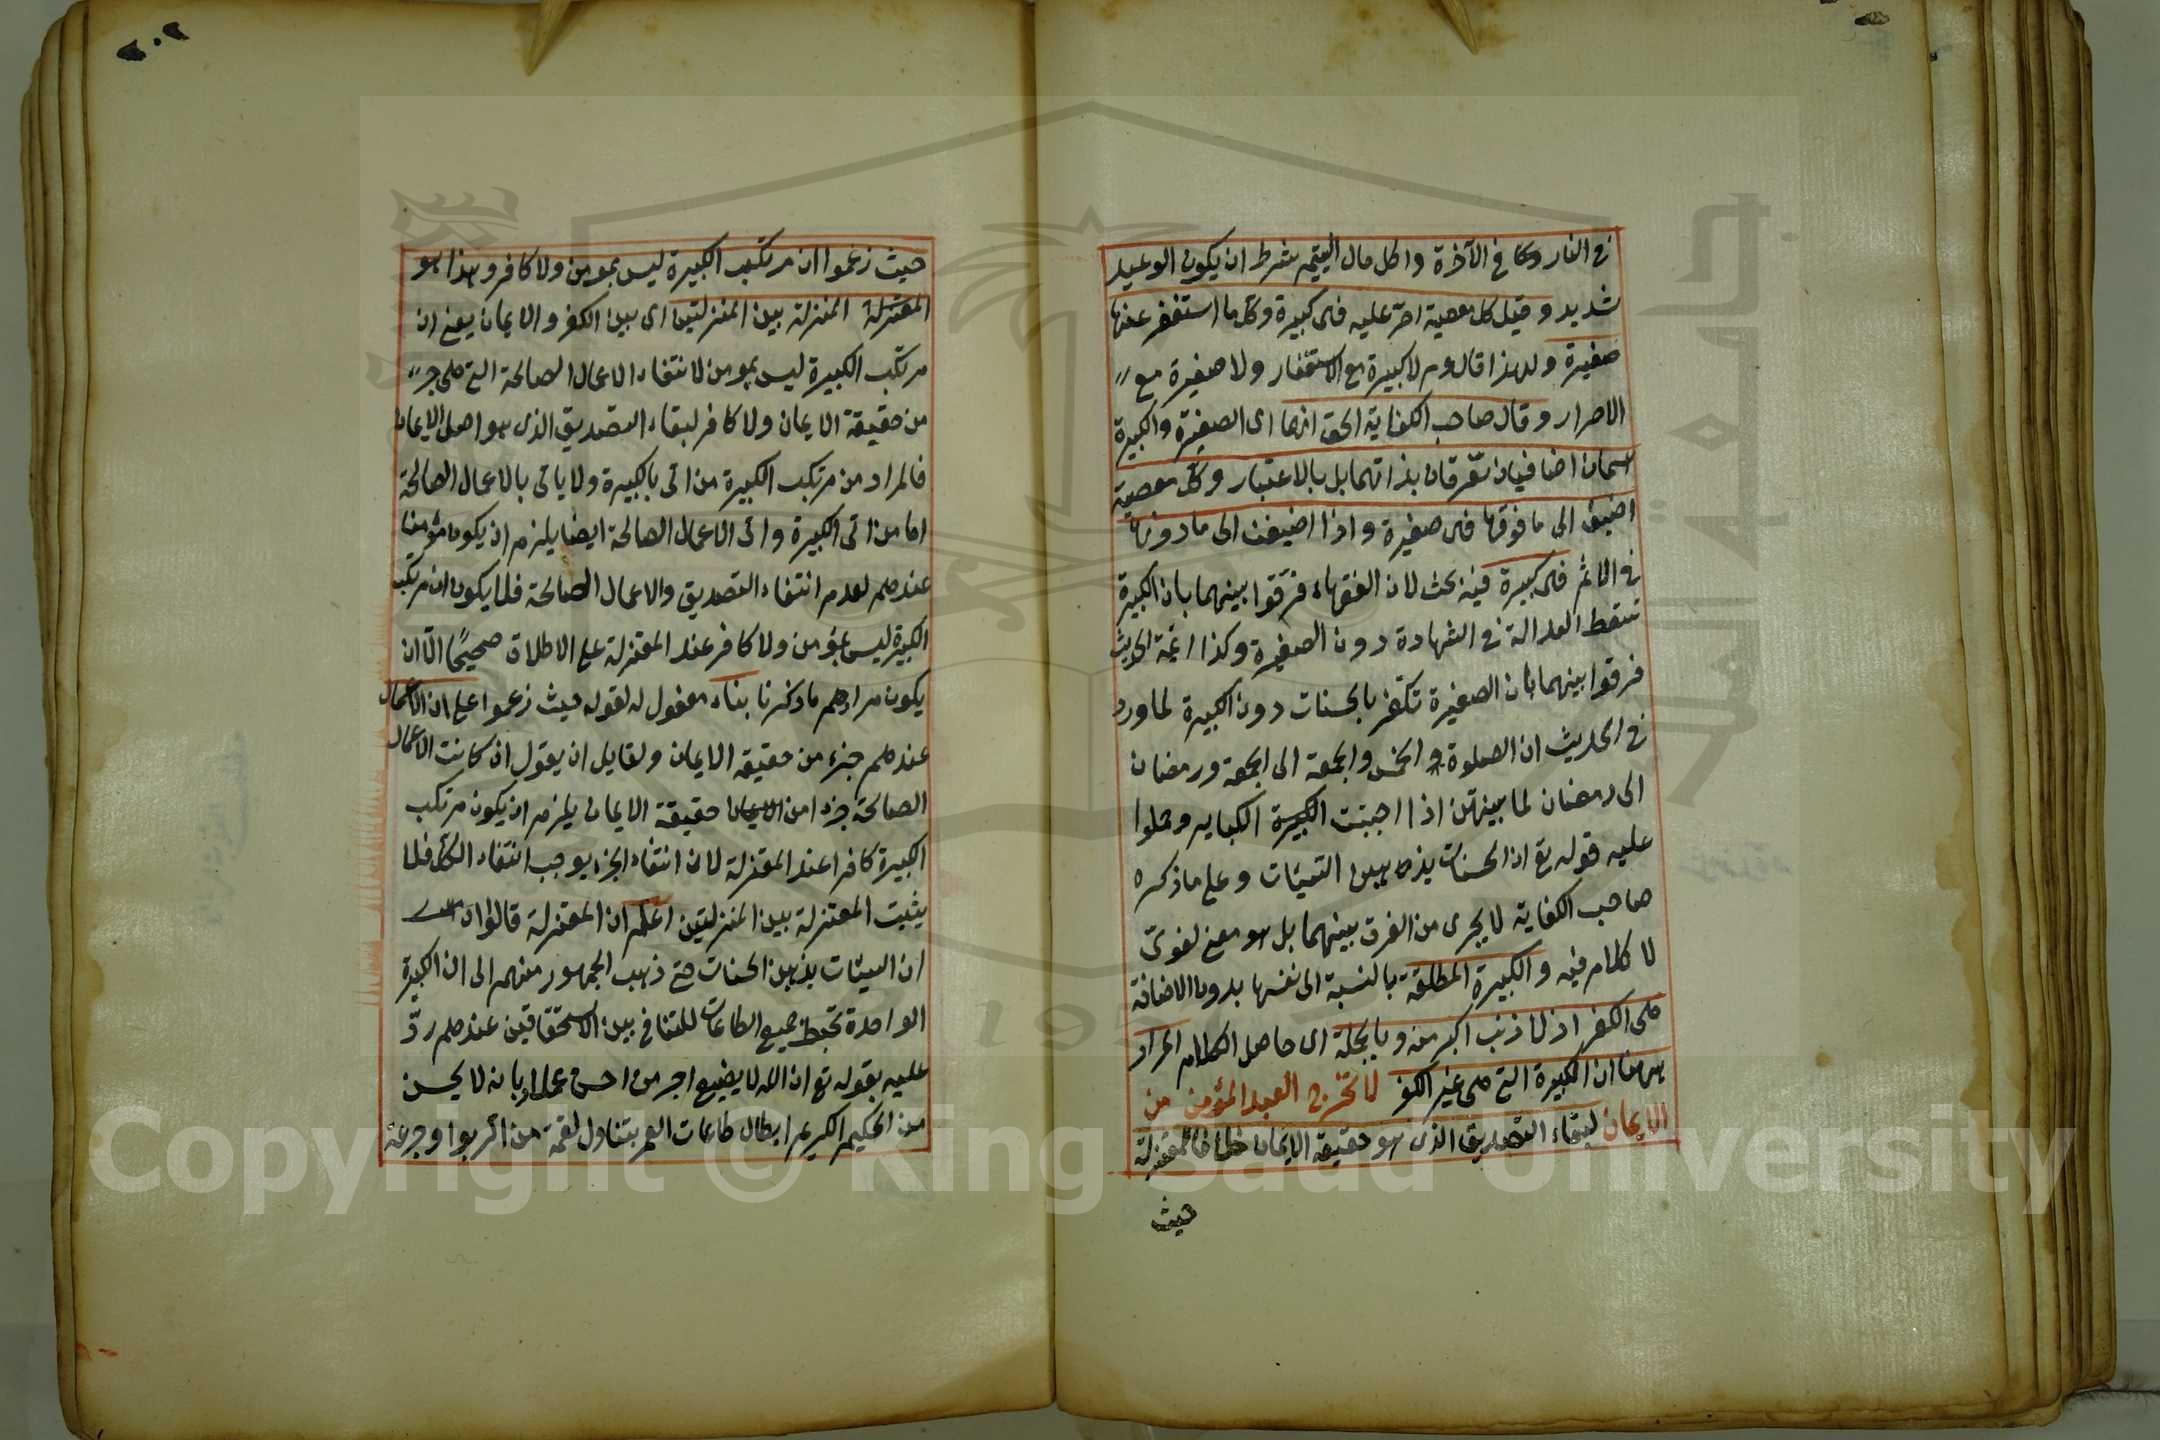 في النار وكما في الآخرة واكل مال اليتيم بشرط ان يكون الوعيد
شديد وقيل كل معصية اصرّ عليه فهى كبيرة وكل ما استغفر عنها
صغيرة ولهذا قال عم لا كبيرة مع الاستغفار ولا صغيرة مع
الاصرار وقال صاحب الكفاية الحق انهما اى الصغيرة والكبيرة
اسمان اضافيان تعرفان بذاتهما بل بالاعتبار وكل معصية
اضيف الى ما فوقها فهى صغيرة واذا اضيفت الى ما دونها
في الاثم فهى كبيرة فيه بحث لان الفقهاء فرّقوا بينهما بان الكبيرة
تسقط العدالة في الشهادة دون الصغيرة وكذا ائمة الحديث
فرقوا بينهما بان الصغيرة تكفر بالحسنات دون الكبيرة لما ورد
في الحديث ان الصلوة الخمس والجمعة الى الجمعة ورمضان
الى رمضان لما بينهن اذا اجتنبت الكبيرة الكباير وحملوا
عليه قوله تع ان الحسنات يذهبن السيئات وعلى ما ذكره
صاحب الكفاية لا يجرى من الفرق بينهما بل هو معنى لغوى
لا كلام فيه والكبيرة المطلقة بالنسبة الى نفسها بدون الاضافة
هى الكفر اذ لا ذنب اكبر منه وبالجملة اى حاصل الكلام المراد
ههنا ان الكبيرة التي هى غير الكفر لا تخرج العبد المؤمن من
الايمان لبقاء التصديق الذى هو حقيقة الايمان خلافا للمعتزلة
حيث
٢٠٢
حيث زعموا ان مرتكب الكبيرة ليس بمومن ولا كافر وهذا هو
المعتزلة المنزلة بين المنزلتين اى بين الكفر والايمان يعني ان
مرتكب الكبيرة ليس بمومن لانتفاء الاعمال الصالحة التي هى جزء
من حقيقة الايمان ولا كافر لبقاء التصديق الذى هو اصل الايمان
فالمراد من مرتكب الكبيرة من اتى بالكبيرة ولا ياتى بالاعمال الصالحة
اما من اتى الكبيرة واتى الاعمال الصالحة ايضا يلزم ان يكون مؤمنا
عندهم لعدم انتفاء التصديق والاعمال الصالحة فلا يكون ان مرتكب
الكبيرة ليس بمؤمن ولا كافر عند المعتزلة على الاطلاق صحيحًا الّا ان
يكون مرادهم ما ذكرنا بناء مفعول له لقوله حيث زعموا على ان الاعمال
عندهم جزء من حقيقة الايمان ولقايل ان يقول ان كانت الاعمال
الصالحة جزءا من الايمان حقيقة الايمان يلزم ان يكون مرتكب
الكبيرة كافرا عند المعتزلة لان انتفاء الجزء يوجب انتفاء الكل فلا
يثبت المعتزلة بين المنزلتين اعلم ان المعتزلة قالوا ان
ان السيئات يذهبن الحسنات حتى ذهب الجمهور منهم الى ان الكبيرة
الواحدة تحبط جميع الطاعات للتنافي بين الاستحقاقين عندهم ردّ
عليه بقوله تع ان الله لا يضيع اجر من احسن عملا وبانه لا يحسن
من الحكيم الكريم ابطال طاعات العمر بتناول لقمة من الربوا وجرعة
Copyright © King Saud University